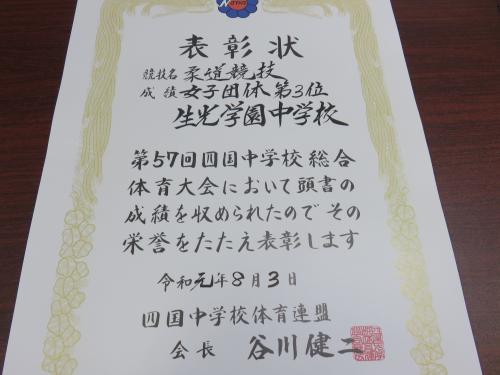 表彰状
競技名 柔道競技
成績 女子団体 第3位
生光学園中学校
第57回四国中学校総合
体育大会において頭書の
成績を収められたのでその
栄誉をたたえ表彰します
令和元年8月3日
四国中学校体育連盟
会長 谷川健二